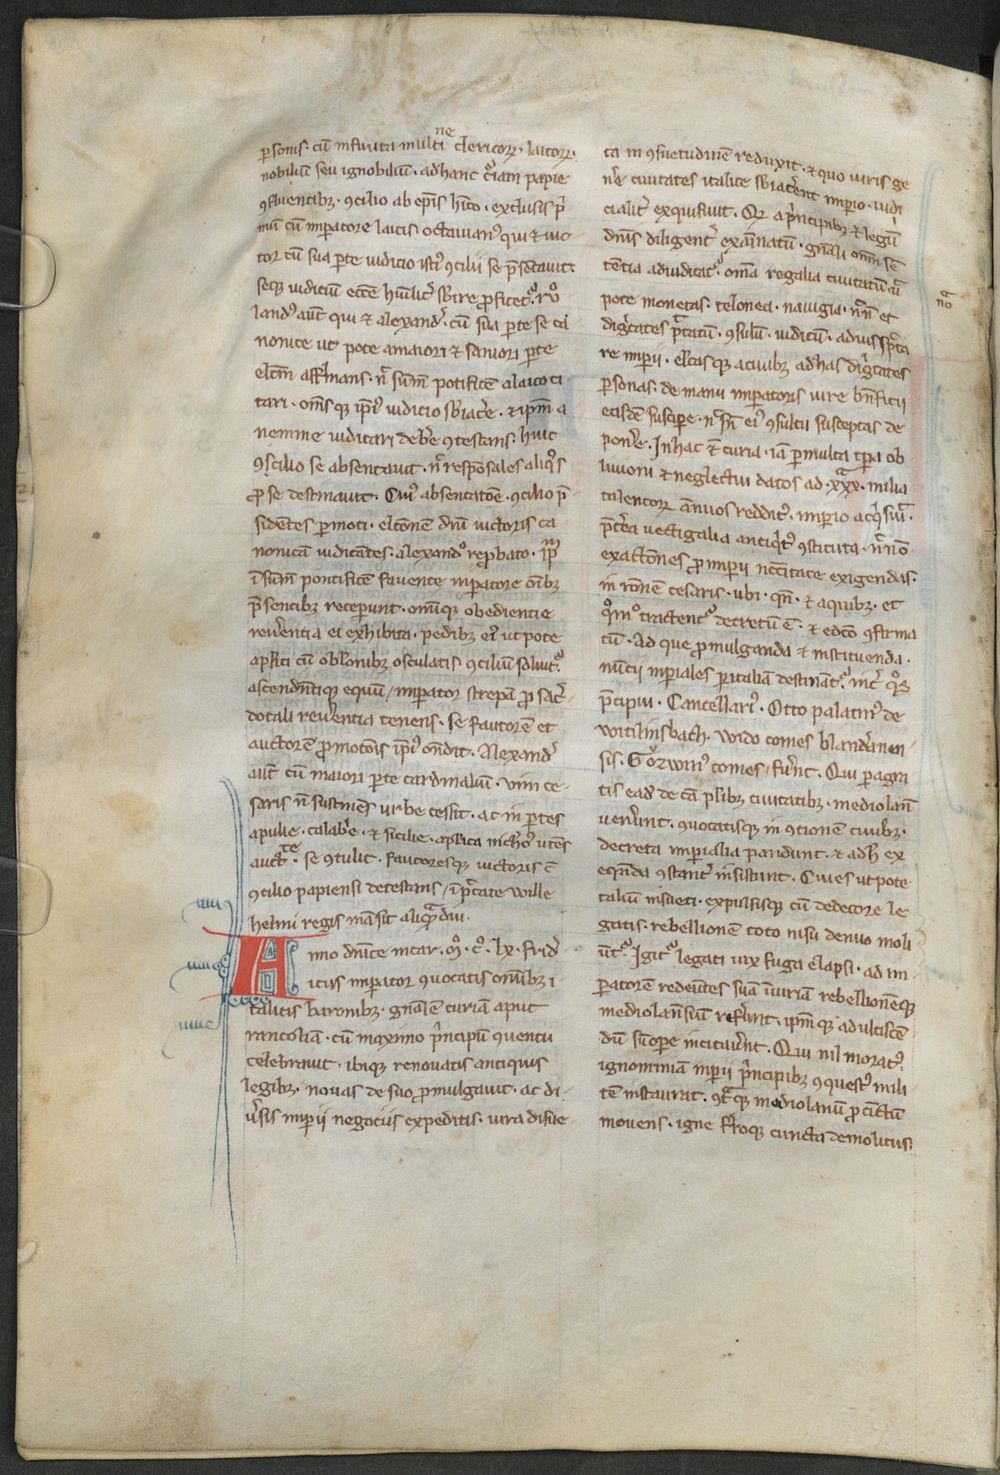 ꝑsonis · cū infinita multi ne clericoꝝ · laicoꝝ ·
nobiliū seu ignobiliū · ad hanc c̾iam papie
ꝯfluentibꝫ · ꝯcilio ab ep̄is h̾ito · exclusis p̾
mū cū impatore laicis octauianꝰ qui ⁊ uic
tor cū sua ꝑte iudicio istiꝰ ꝯcilii se p̄sētauit ·
seqꝫ iudiciū ecc̄e hūilit̾ sbire ꝓfitet᷑ · ro
landꝰ aūt qui ⁊ alexand̾ · cū sua ꝑte se ca
nonice ut pote a maiori ⁊ saniori ꝑte
elcm̄ affirmans · n̄ sūm̄ pōtificē a laico ci
tari · om̄sqꝫ ipīꝰ iudicio sbiac̾e · ⁊ ip̄m a
nemine iudicari deb̾e ꝯtestans · huic
ꝯscilio se absentauit · n̄ respōsales aliqͦs
ꝓ se destinauit · Cuiꝰ absentatōe · ꝯcilio p̄
sidētes ꝑmoti · elcōnē dn̄i uictoris ca
nonicā iudicātes · alexandͦ rep̄bato · ip̄m
ī sūm̄ pontificē fauente inpatore oīb̄ꝫ
p̄sentibꝫ recepunt · om̄iqꝫ obedientie
reu̾entia ei exhibita · pedibꝫ eiꝰ ut pote
apl̄ici cū oblonibꝫ osculatis ꝯciliū soluit᷑ ·
ascendn̄tiqꝫ equū / impator strepā ꝓ sac̾
dotali reu̾entia tenens · se fautorē et
auctorē ꝓmotōis ipīꝰ oñdit · Alexand̾
aūt cū maiori ꝑte cardinaliū · uim ce
saris n̄ sustinēs urbe cessit · ac in ꝑtes
apulie · calab̾e · ⁊ sicilie · apl̄ica nichoꝰ utēs
auct̄te · se ꝯtulit · fautoresqꝫ uictoris ī
ꝯcilio papiensi detestans / ī p̄c̄tate wille
helmi regis māsit aliqͣdiu ·
Anno dn̄ice incar · mͦ · cͦ · lx · frid̾
icus impator ꝯuocatis om̄ibꝫ i
talicis baronibꝫ · gn̄alē curiā aput
rancoliā · cū maximo p̾ncipū ꝯuentu
celebrauit · ibiqꝫ renouatis antiquis
legibꝫ · nouas de suo ꝓmulgauit · ac di
u̾sis impii negociis expeditis · iura disue
ta in ꝯsuetudinē reduxit · ⁊ quo iuris ge
n̾e ciuitates italice sbiac̾ent impio · iudi
cialit̾ exquisiuit · Qr̄ a p̾ncipibꝫ ⁊ legū
dn̄is diligent̾ exāinatū · gn̄ali om̄i sē
tētia adiudicat᷑ · om̄a regalia ciuitatū ut
pote monetas · telonea · nauigia · n̄n̄ et
dig̾tates p̄tatū · ꝯsulū · iudicū · ad ius spc̄ta
re impii · elc̄asqꝫ a ciuibꝫ ad has dig̾tates
ꝑsonas · de manu impatoris iure bn̄ficii
easdē suscipe · n̄ s̄n̄ eiꝰ ꝯsultu susceptas de
pon̾e · In hac ⁊ curia · iā ꝑmulta tpa ob
liuioni ⁊ neglectui datos ad · xxx · milia
talentoꝝ ānuos redditꝰ · impio acq̾siuit ·
p̄t̾ea uectigalia antiq̾tꝰ ꝯstituta · n̄nō
exactōnes ꝓ impii nccitate exigendas ·
in rōnē cesaris · ubi · qn̄ · ⁊ a quibꝫ · et
qͦmͦ tractent᷑ decretū ē · ⁊ edco ꝯfirma
tū · Ad que ꝓmulganda ⁊ instituenda ·
nūcii inpiales ꝑ italiā destinant᷑ · int̾ qͦs
p̄cipui · Cancellariꝰ · Otto palatinꝰ de
witilinsbach · wido comes blandranen
sis · Gozwinꝰ comes / fu̾nt · Qui ꝑagra
tis ead̾ de cā plibꝫ ciuitatibꝫ · mediolanū
uen̾unt · ꝯuocatisqꝫ in ꝯtionē ciuibꝫ ·
decreta impialia pandunt · ⁊ ad h̄ ex
eqn̄da ꝯstant̾ insistunt · Ciues ut pote
taliū insueti · expulsisqꝫ cū dedecore le
gatis · rebellionē toto nisu denuo moli
unt᷑ · Igit᷑ legati uix fuga elapsi · ad im
patorē redeūtes suā iniuriā rebellionēqꝫ
mediolan̄siū ref̾unt · ip̄mqꝫ ad ulciscē
dū sūope incitau̾nt · Qui nil moratꝰ
ignominiā inpii p̾ncipibꝫ ꝯquestꝰ mili
tē instaurat · ꝯtͣqꝫ mediolanū ꝓcinctū
mouens · igne ferroqꝫ cuncta demolitus
nōͣ